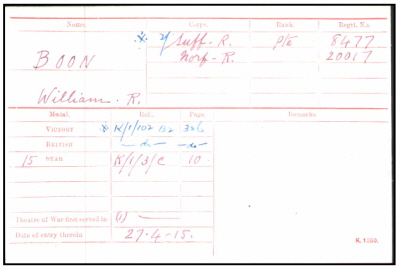 Name. Corps. Rank. Regtl. No.
※ 2/ Suff-R. Pte 8477
BOON Norf-R. 20017
William. R.
Medal. Roll. Page. Remarks.
VICTORY ※ K/1/102 B2 326
BRITISH —do— —do—
15 STAR K/1/3/C 10
Theatre of War first served in (1)
Date of entry therein 27-4-15.
K. 1380.